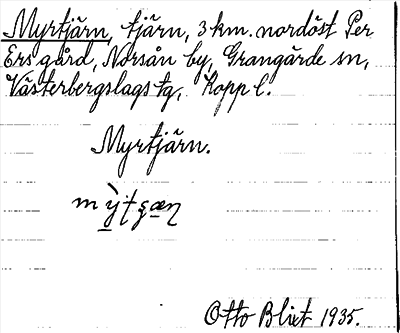 Myrtjärn, tjärn, 3 km. nordöst Per
Ers gård, Norsån by, Grangärde sn,
Västerbergslags tg, Kopp l.
Myrtjärn.
Otto Blixt 1935.